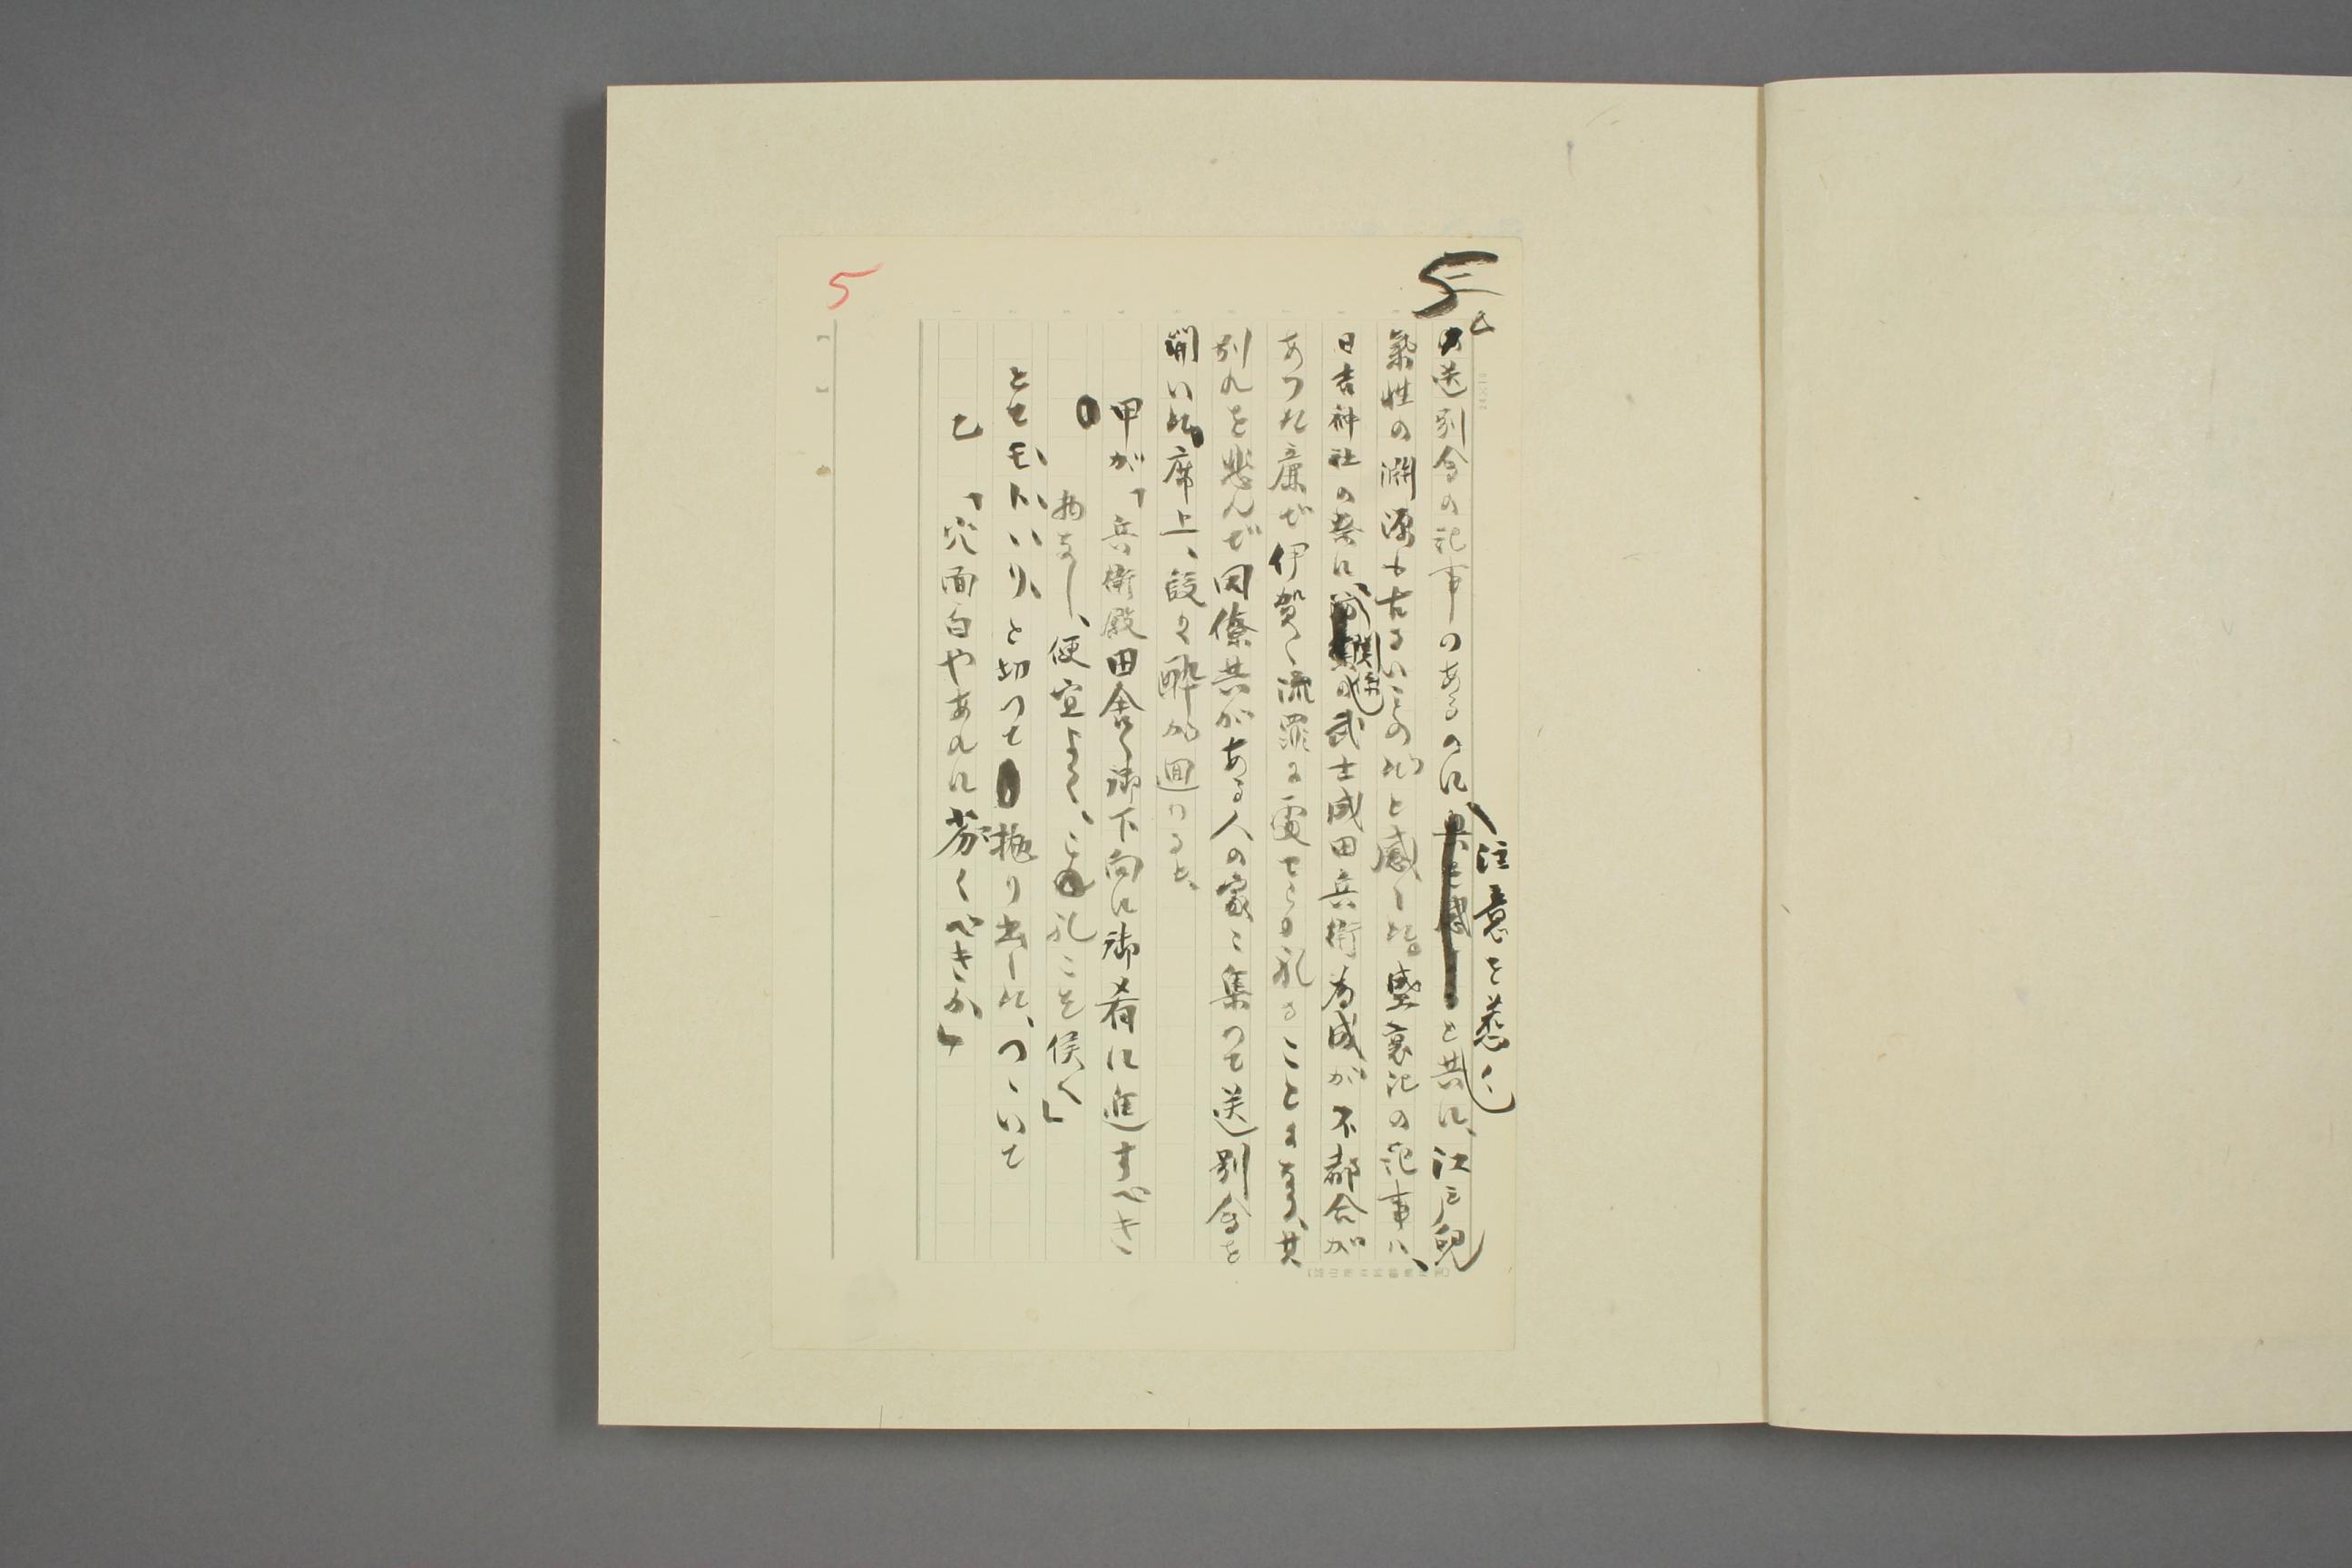 5
の送別会の記事のあるのに注意を惹くと共に、江戸児
気性の淵源も古るいものだと感じた。盛衰記の記事は、
日吉神社の祟に、関係の武士成田兵衛為成が不都合が
あつた廉で伊賀へ流罪に處せらるることになる、其
別れを悲んで同僚共がある人の家に集つて送別会を
開いた席上、段々酔が廻つると、
甲が「兵衛殿田舎へ御下向に御肴に進すべき
物なし、便宜よく、これこそ候へ」
とてモトいリと切つて抛り出した、つゞいて
乙「穴面白やあれに劣くべきか」
5